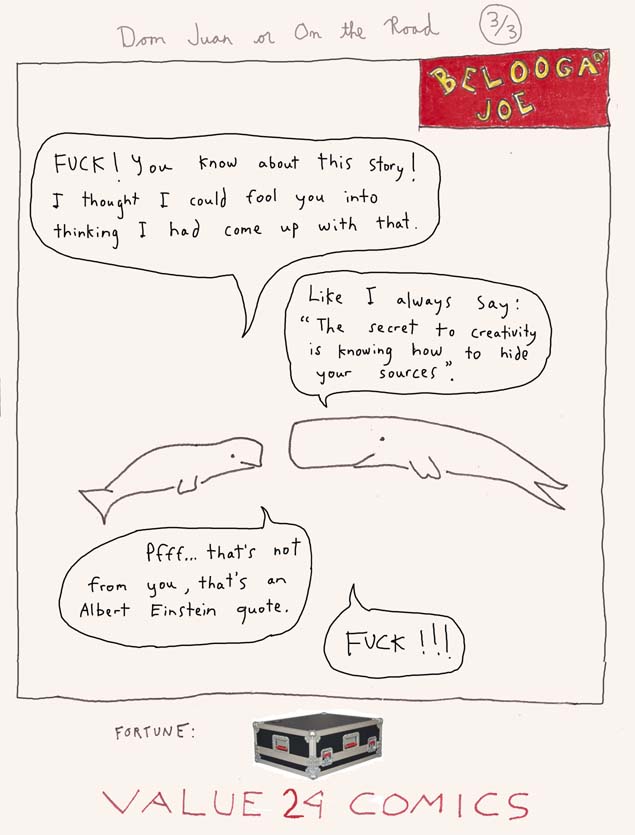 Dom Juan or On the Road 3/3
BELOOGA
JOE
FUCK! You know about this story!
I thought I could fool you into
thinking I had come up with that.
Like I always say:
"The secret to creativity
is knowing how to hide
your sources".
Pfff... that's not
from you, that's an
Albert Einstein quote.
FUCK!!!
FORTUNE:
VALUE 24 COMICS